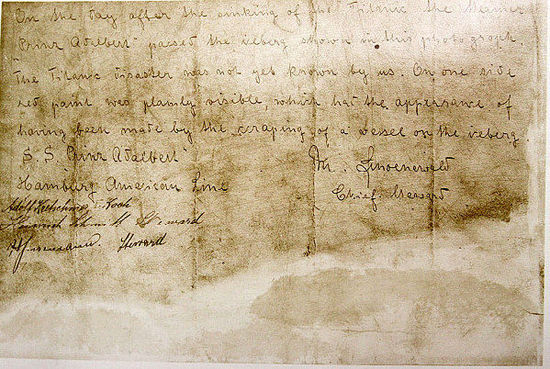 On the day after the sinking of the Titanic, the steamer
Prinz Adalbert passed the iceberg shown in this photograph.
The Titanic disaster was not yet known by us. On one side
red paint was plainly visible, which had the appearance of
having been made by the scraping of a vessel on the iceberg.
S. S. Prinz Adalbert
M. Linoenewald
Hamburg American Line
Chief Steward
Steward
Steward